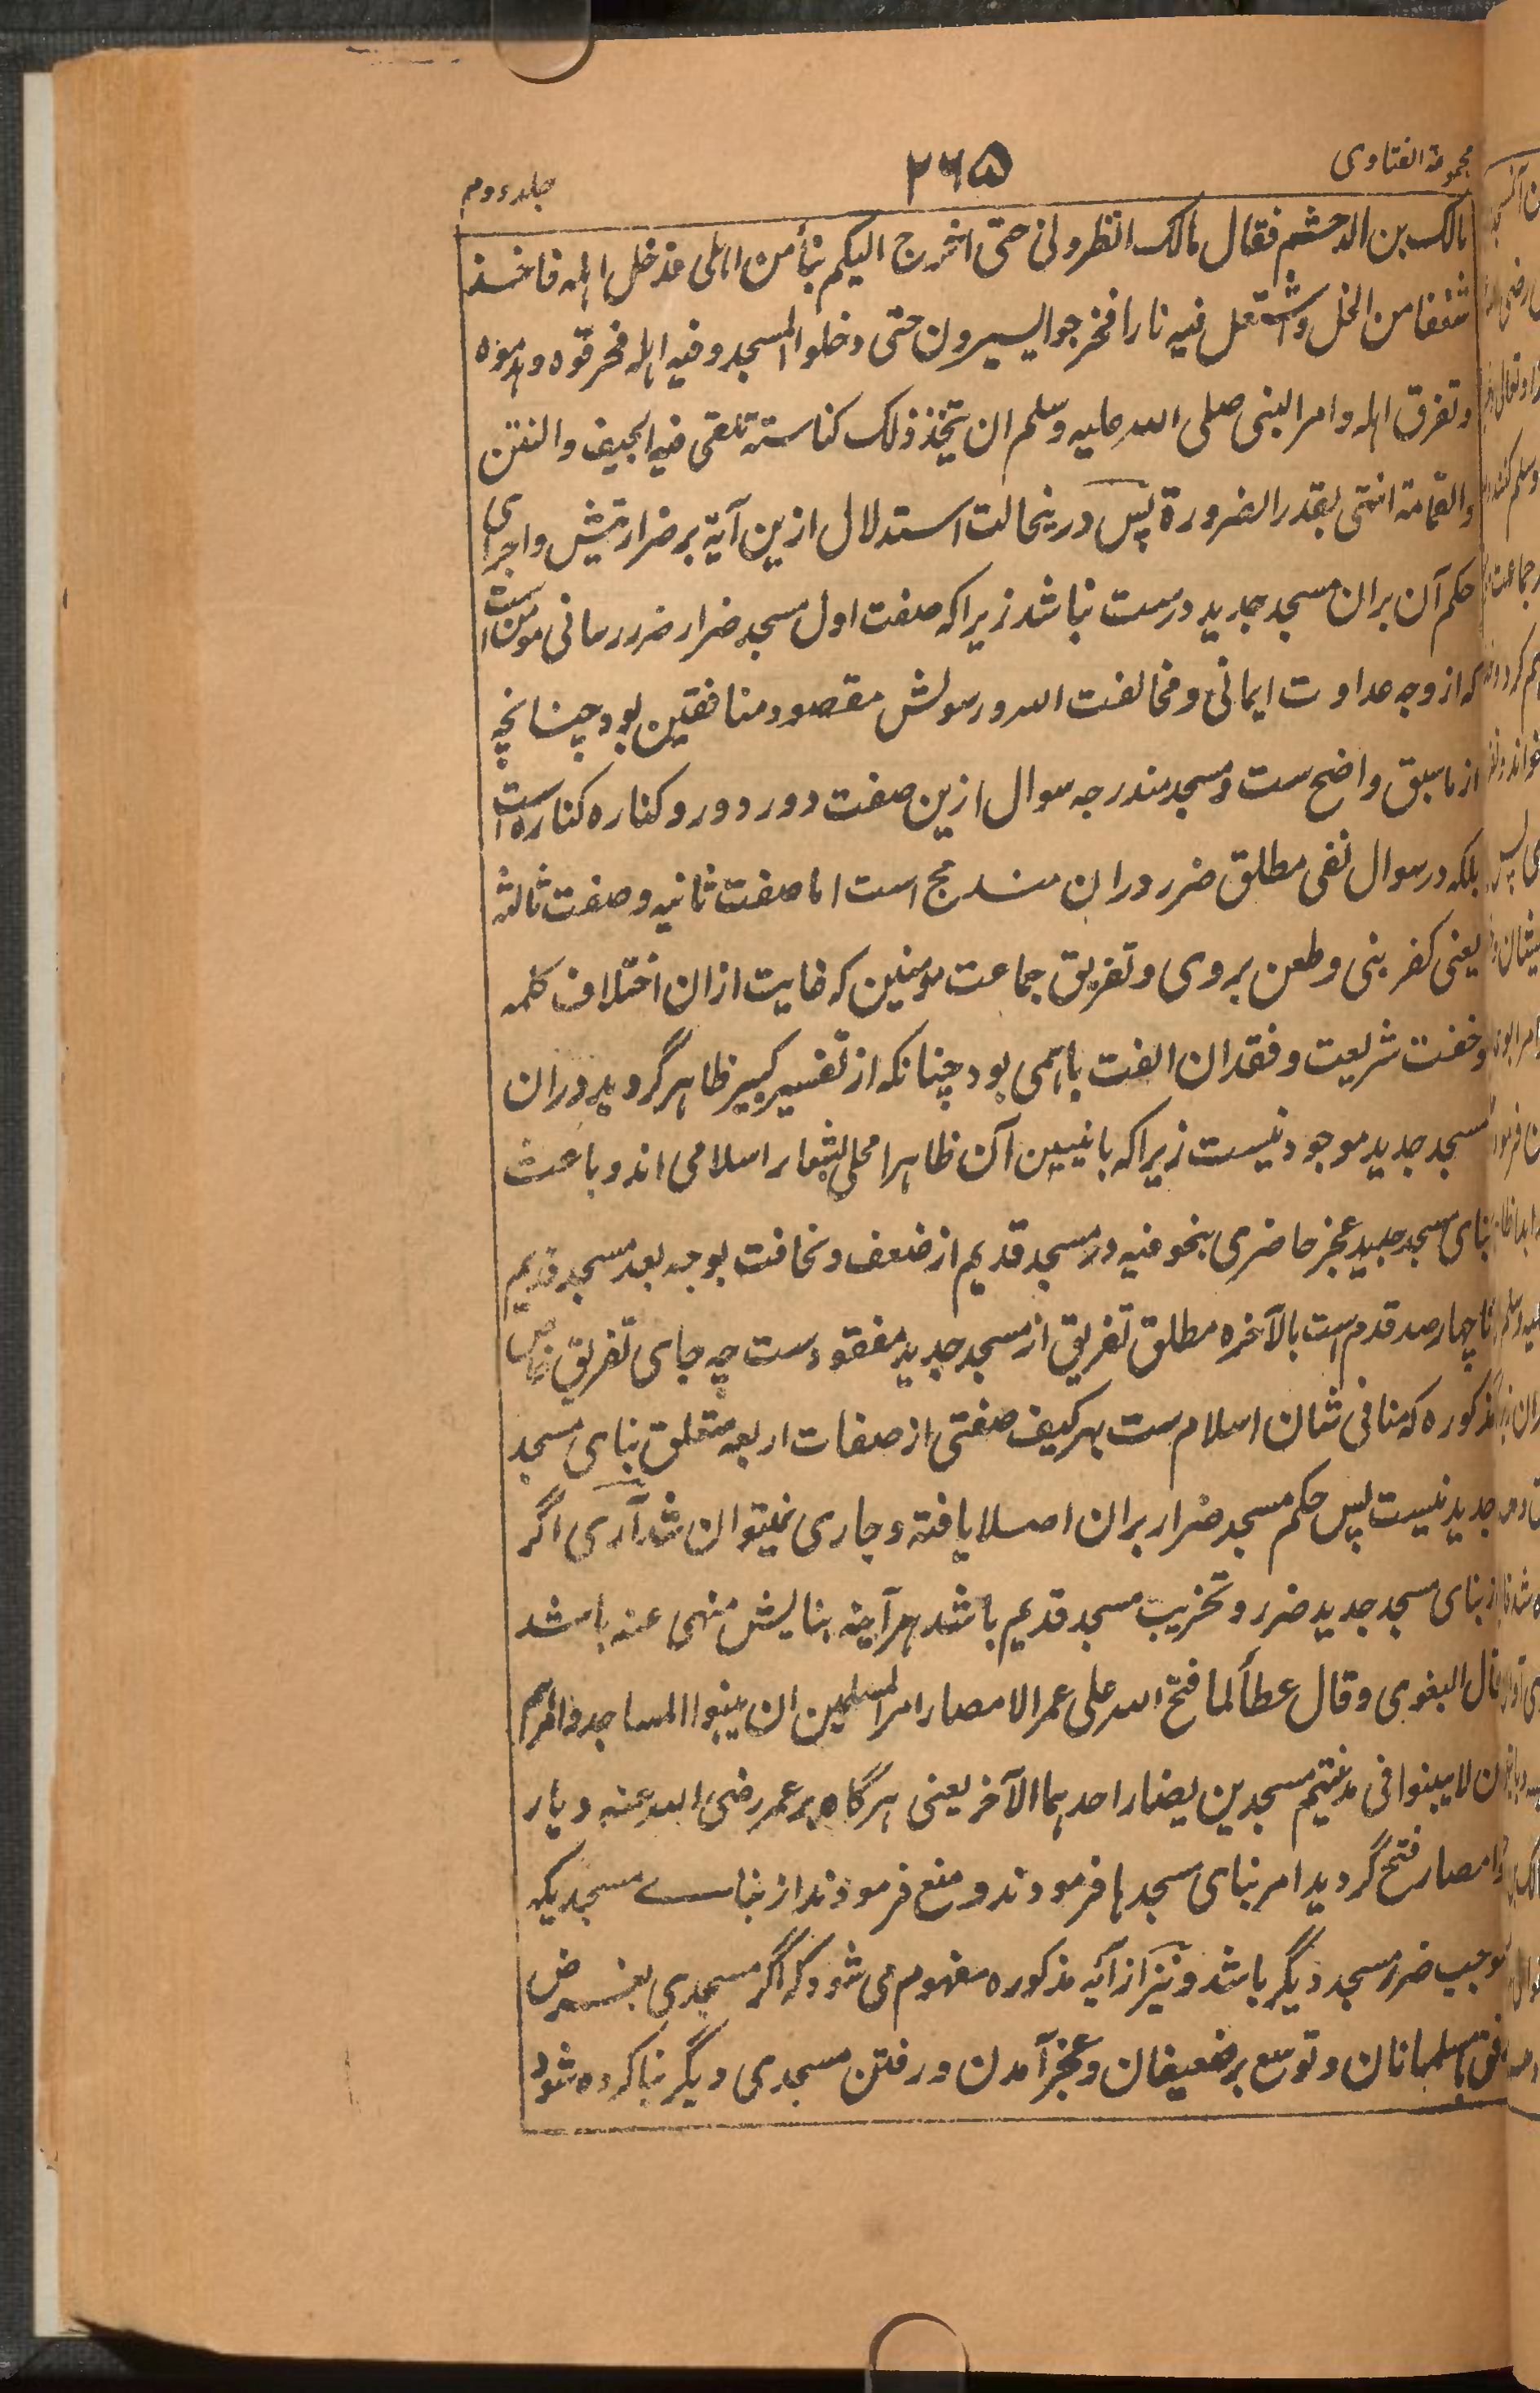 مجموعة الفتاوی
۲۶۵
جلد دوم
مالک بن الدخشم فقال مالک انظرونی حتی اخرج الیکم بنأمن اهلی فدخل اهله فاخذ
شعفا من النخل واشتعل فیه نارا فخرجوا یسیرون حتی دخلوا المسجد وفیه اهله فحرقوه وهدموه
وتفرق اهله وامر النبی صلی الله علیه وسلم ان یتخذ ذلک کناسته تلقی فیه الجیف والنتن
والقمامة انتهی بقدر الضرورة پس درینحالت استدلال ازین آیة بر ضراریتش واجرای
حکم آن بران مسجد جدید درست نباشد زیرا که صفت اول مسجد ضرار ضرر رسانی مومنین است
که از وجه عداوت ایمانی و مخالفت الله ورسولش مقصود منافقین بود چنانچه
از ماسبق واضح ست ومسجد مندرجه سوال ازین صفت دور دور و کناره کناره است
بلکه در سوال نفی مطلق ضرر دران مندرج است اما صفت ثانیه وصفت ثالثه
یعنی کفر بنی وطعن بر وی وتفریق جماعت مومنین که غایت ازان اختلاف کلمه
وخفت شریعت وفقدان الفت باهمی بود چنانکه از تفسیر کبیر ظاهر گردید دران
مسجد جدید موجود نیست زیرا که بانیین آن ظاهرا محلی بشعار اسلامی اند وباعث
بنای مسجد جدید عجز حاضری بنحو فیه در مسجد قدیم از ضعف ونحافت بوجه بعد مسجد قدیم
تا چهار صد قدم است بالآخره مطلق تفریق از مسجد جدید مفقود ست چه جای تفریق خاص
مذکوره که منافی شان اسلام ست بهر کیف صفتی از صفات اربعه متعلق بنای مسجد
جدید نیست پس حکم مسجد ضرار بران اصلا یافته وجاری نمیتوان شد آری اگر
از بنای مسجد جدید ضرر وتخریب مسجد قدیم باشد هر آینه بنایش منهی عنه باشد
قال البغوی وقال عطأ لما فتح الله علی عمر الامصار امر المسلمین ان یبنوا المساجد وامرهم
ان لا یبنوا فی مدینتهم مسجدین یضار احدهما الآخر یعنی هرگاه بر عمر رضی الله عنه دیار
وامصار فتح گردید امر بنای مسجد ها فرمودند و منع فرمودند از بنای مسجدیکه
موجب ضرر مسجد دیگر باشد و نیز از آیه مذکوره مفهوم می شود که اگر مسجدی بغرض
رفق بمسلمانان و توسیع بر ضعیفان وعجز آمدن و رفتن مسجدی دیگر بنا کرده شود